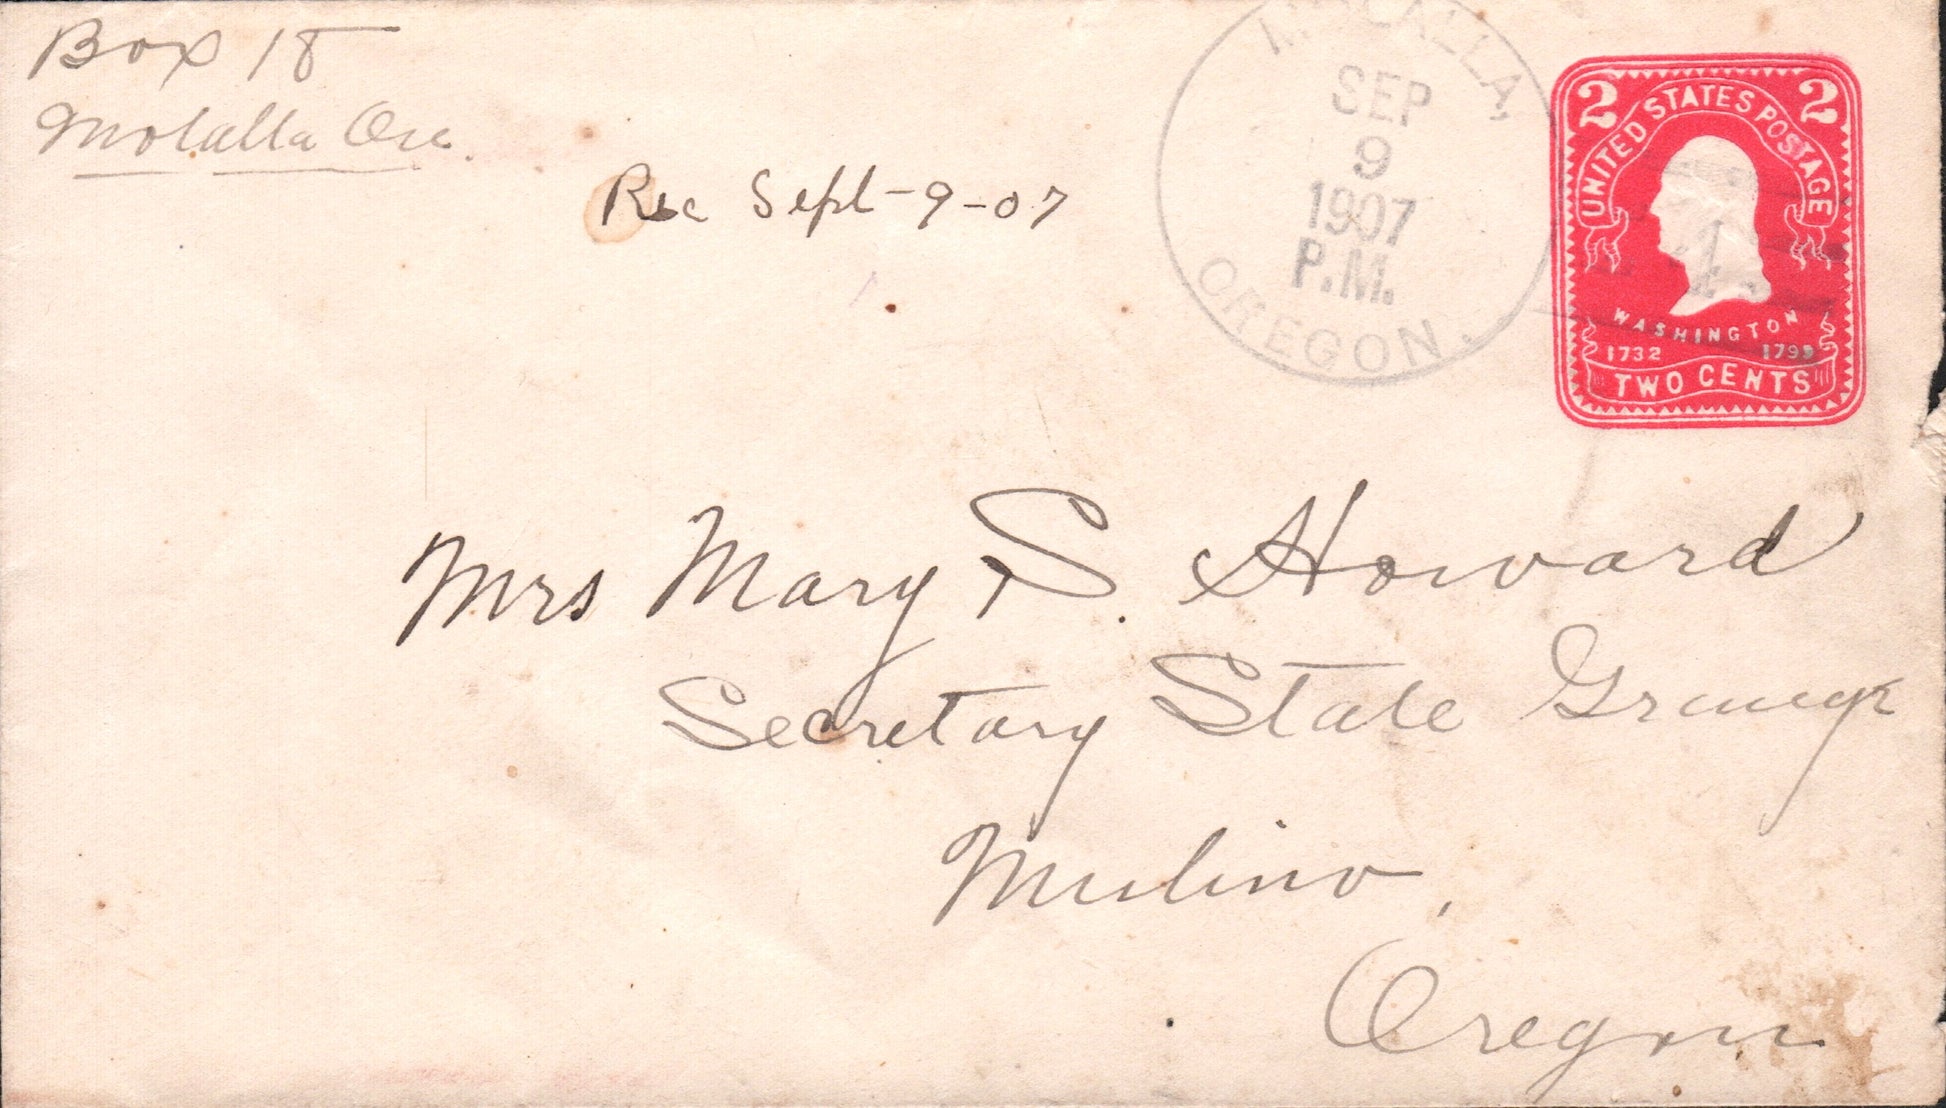 Box 18
Molalla Ore.
Rec Sept-9-07
MOLALLA,
SEP
9
1907
P.M.
OREGON.
2 2
UNITED STATES POSTAGE
1
WASHINGTON
1732 1799
TWO CENTS
Mrs Mary S. Howard
Secretary State Grange
Mulino,
Oregon